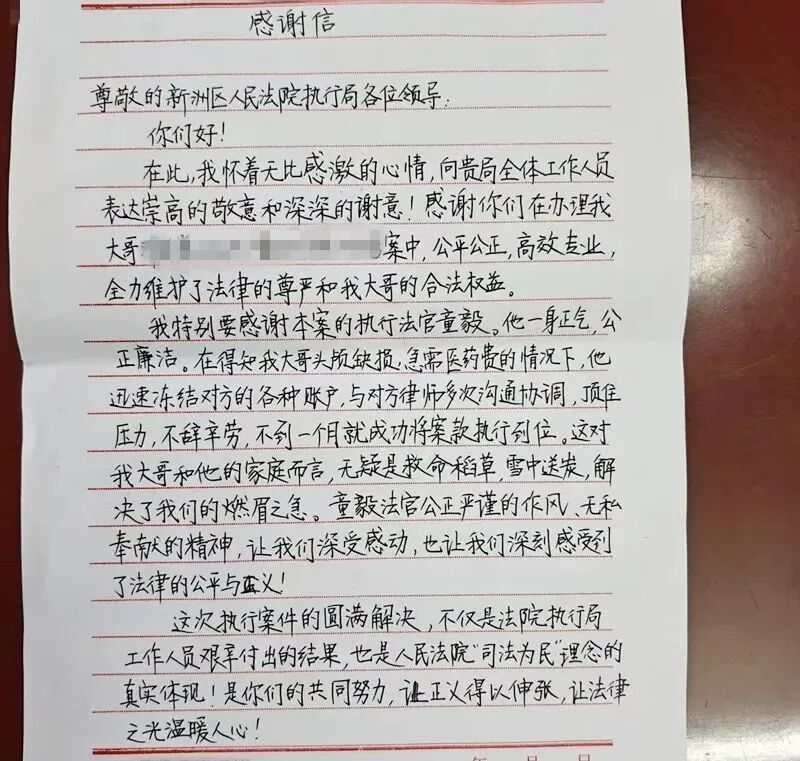 感谢信
尊敬的新洲区人民法院执行局各位领导:
你们好!
在此,我怀着无比感激的心情,向贵局全体工作人员
表达崇高的敬意和深深的谢意!感谢你们在办理我
大哥 案中,公平公正,高效专业,
全力维护了法律的尊严和我大哥的合法权益。
我特别要感谢本案的执行法官童毅。他一身正气,公
正廉洁。在得知我大哥头颅缺损,急需医药费的情况下,他
迅速冻结对方的各种账户,与对方律师多次沟通协调,顶住
压力,不辞辛劳,不到一个月就成功将案款执行到位。这对
我大哥和他的家庭而言,无疑是救命稻草,雪中送炭,解
决了我们的燃眉之急。童毅法官公正严谨的作风、无私
奉献的精神,让我们深受感动,也让我们深刻感受到
了法律的公平与正义!
这次执行案件的圆满解决,不仅是法院执行局
工作人员艰辛付出的结果,也是人民法院"司法为民"理念的
真实体现!是你们的共同努力,让正义得以伸张,让法律
之光温暖人心!
年 月 日